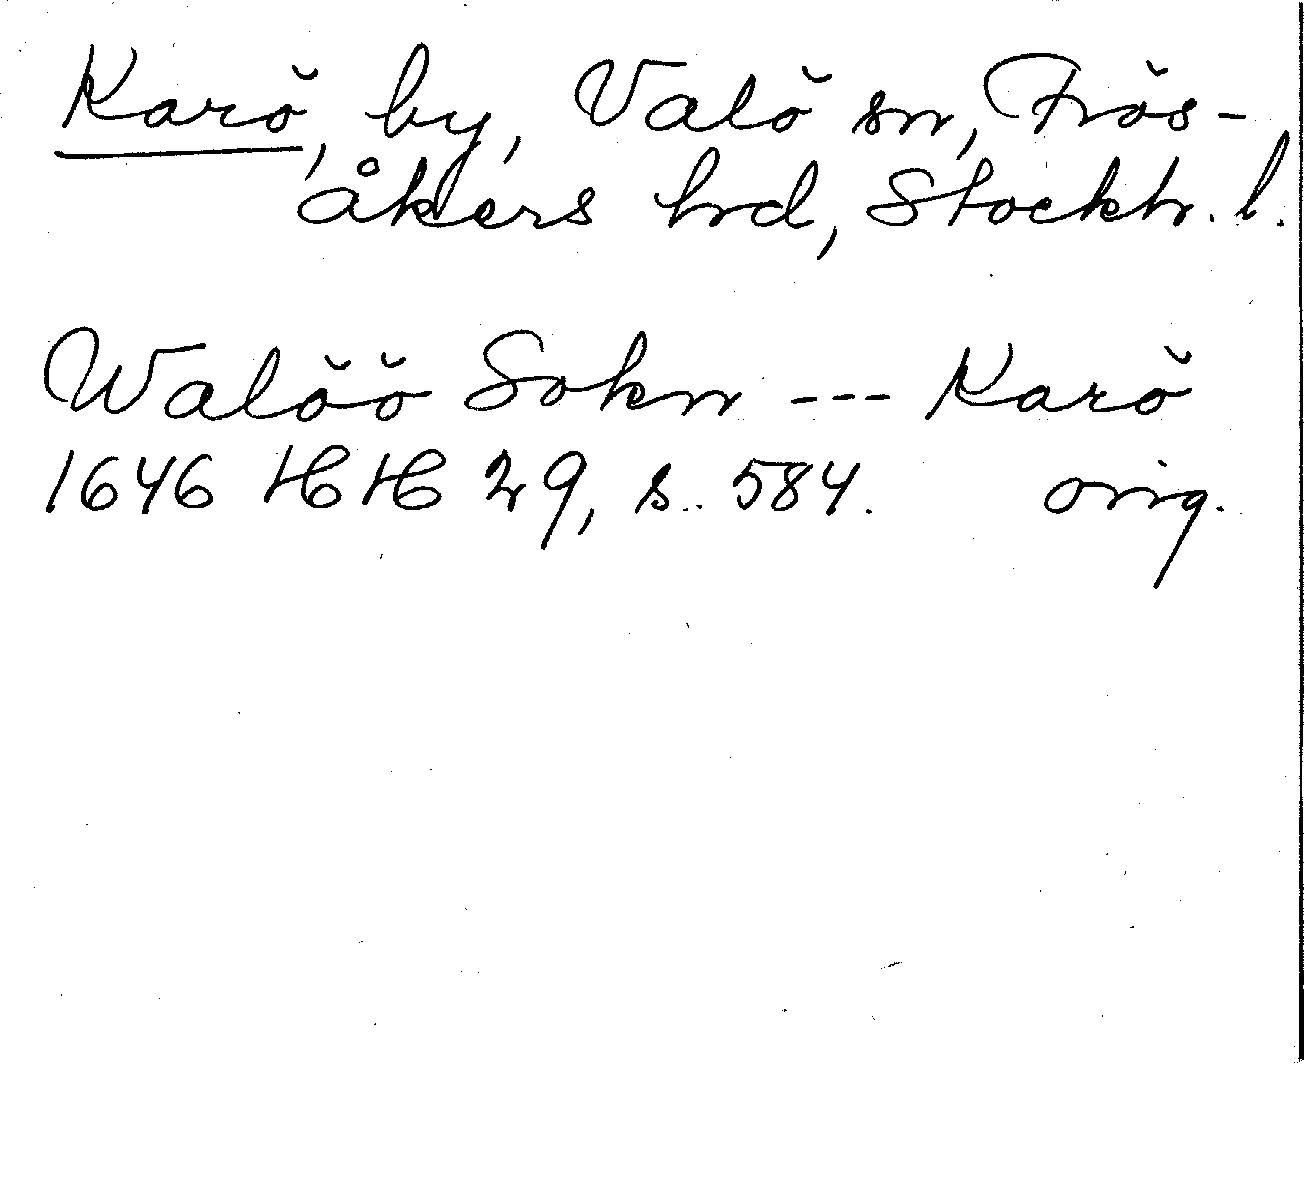 Karö, by, Valö sn, Frös-
åkers hrd, Stockh. l.
Walöö Sokn --- Karö
1646 HH 29, s. 584. orig.